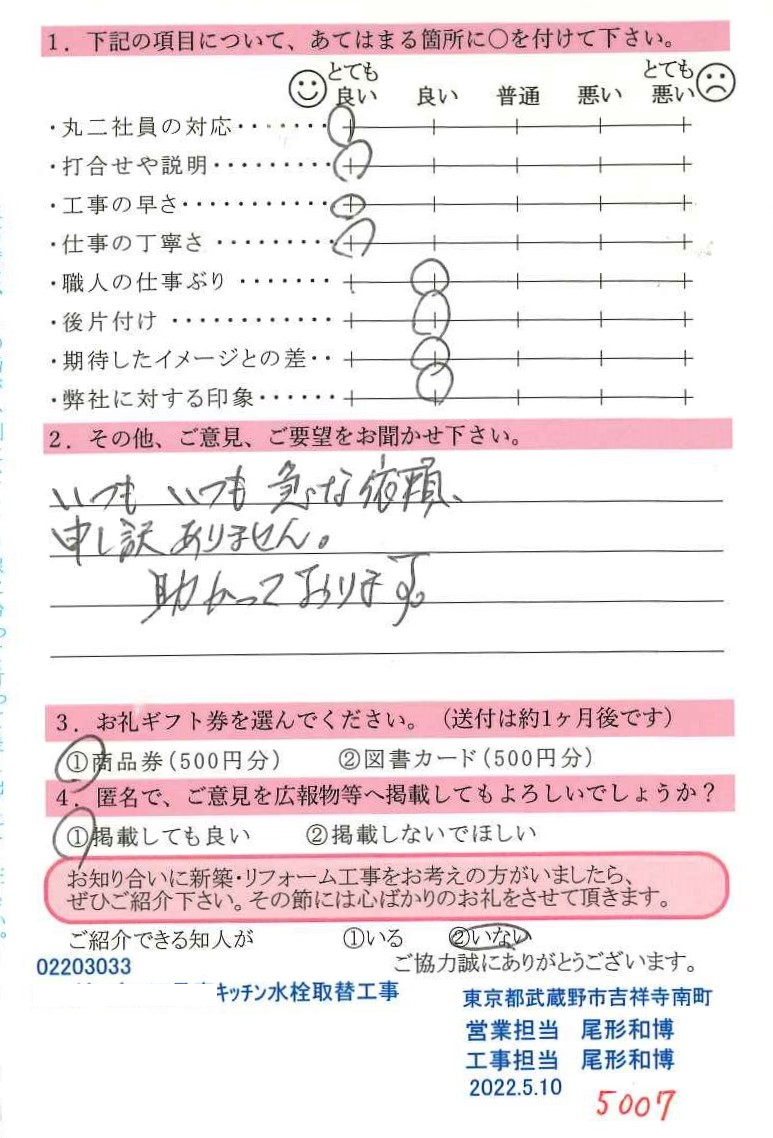 1．下記の項目について、あてはまる箇所に○を付けて下さい。
とても良い 良い 普通 悪い とても悪い
・丸二社員の対応・・・・・・・
・打合せや説明・・・・・・・・・
・工事の早さ・・・・・・・・・・・
・仕事の丁寧さ ・・・・・・・・・
・職人の仕事ぶり ・・・・・・・
・後片付け ・・・・・・・・・・・・
・期待したイメージとの差・・
・弊社に対する印象・・・・・・
2．その他、ご意見、ご要望をお聞かせ下さい。
いつも いつも 急な依頼、
申し訳ありません。
助かっております。
3．お礼ギフト券を選んでください。（送付は約1ヶ月後です）
①商品券（500円分） ②図書カード（500円分）
4．匿名で、ご意見を広報物等へ掲載してもよろしいでしょうか？
①掲載しても良い ②掲載しないでほしい
お知り合いに新築・リフォーム工事をお考えの方がいましたら、
ぜひご紹介下さい。その節には心ばかりのお礼をさせて頂きます。
ご紹介できる知人が ①いる ②いない
ご協力誠にありがとうございます。
02203033
キッチン水栓取替工事
東京都武蔵野市吉祥寺南町
営業担当 尾形和博
工事担当 尾形和博
2022.5.10
5007